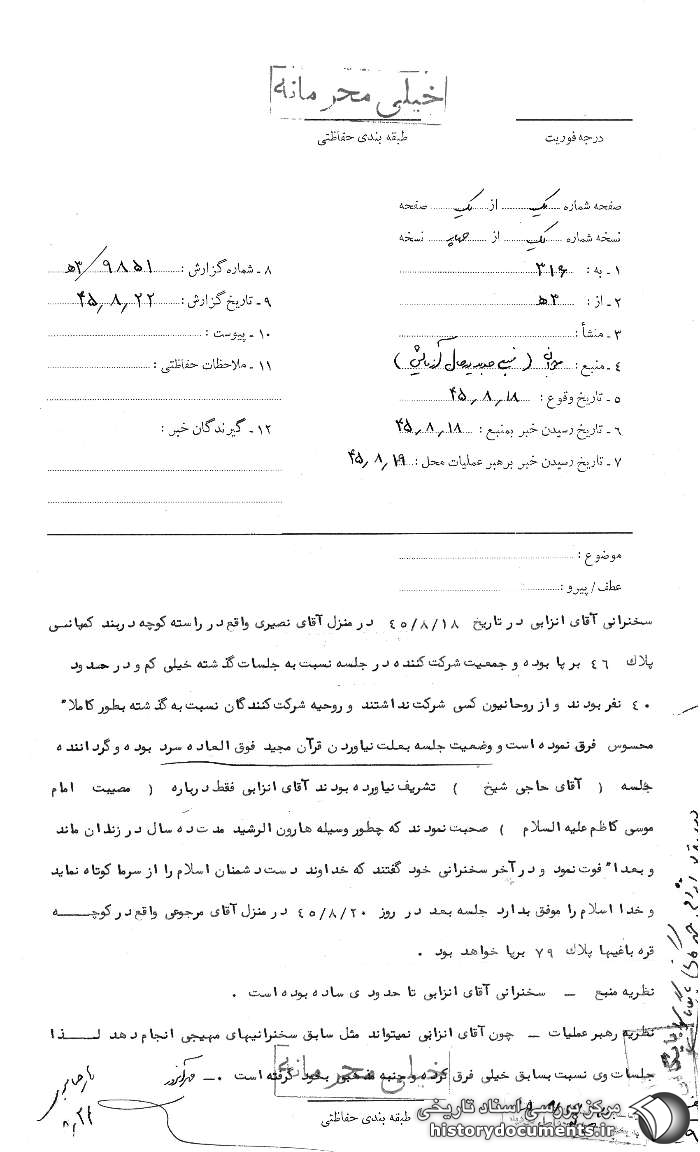 خیلی محرمانه
درجه فوریت
طبقه بندی حفاظتی
صفحه شماره یک از یک صفحه
نسخه شماره یک از چهار نسخه
۱ - به : ۳۱۶
۲ - از : ۳ه
۳ - منشأ :
۴ - منبع :
۵ - تاریخ وقوع : ۴۵/۸/۱۸
۶ - تاریخ رسیدن خبر بمنبع : ۴۵/۸/۱۸
۷ - تاریخ رسیدن خبر برهبر عملیات محل : ۴۵/۸/۱۹
۸ - شماره گزارش : ۹۸۵۱/۳ه
۹ - تاریخ گزارش : ۴۵/۸/۲۲
۱۰ - پیوست :
۱۱ - ملاحظات حفاظتی :
۱۲ - گیرندگان خبر :
موضوع :
عطف/پیرو :
سخنرانی آقای انزابی در تاریخ ۴۵/۸/۱۸ در منزل آقای نصیری واقع در راسته کوچه دربند کمپانسی
پلاك ۴۶ برپا بوده و جمعیت شرکت کننده در جلسه نسبت به جلسات گذشته خیلی کم و در حدود
۴۰ نفر بودند و از روحانیون کسی شرکت نداشتند و روحیه شرکت کنندگان نسبت به گذشته بطور کاملا"
محسوس فرق نموده است و وضعیت جلسه بعلت نیاوردن قرآن مجید فوق العاده سرد بوده و گرداننده
جلسه ( آقای حاجی شیخ ) تشریف نیاورده بودند آقای انزابی فقط درباره ( مصیبت امام
موسی کاظم علیه السلام ) صحبت نمودند که چطور وسیله هارون الرشید مدت ده سال در زندان ماند
و بعدا" فوت نمود و در آخر سخنرانی خود گفتند که خداوند دست دشمنان اسلام را از سرما کوتاه نماید
و خدا اسلام را موفق بدارد جلسه بعد در روز ۴۵/۸/۲۰ در منزل آقای مرجوعی واقع در کوچه
قره باغیها پلاك ۷۹ برپا خواهد بود .
نظریه منبع – سخنرانی آقای انزابی تا حدودی ساده بوده است .
نظریه رهبر عملیات – چون آقای انزابی نمیتواند مثل سابق سخنرانیهای مهیجی انجام دهد لذا
جلسات وی نسبت بسابق خیلی فرق کرده و جنبه مذهبی بخود گرفته است .–
خیلی محرمانه
طبقه بندی حفاظتی
۸/۲۴
مرکز بررسی اسناد تاریخی
historydocuments.ir